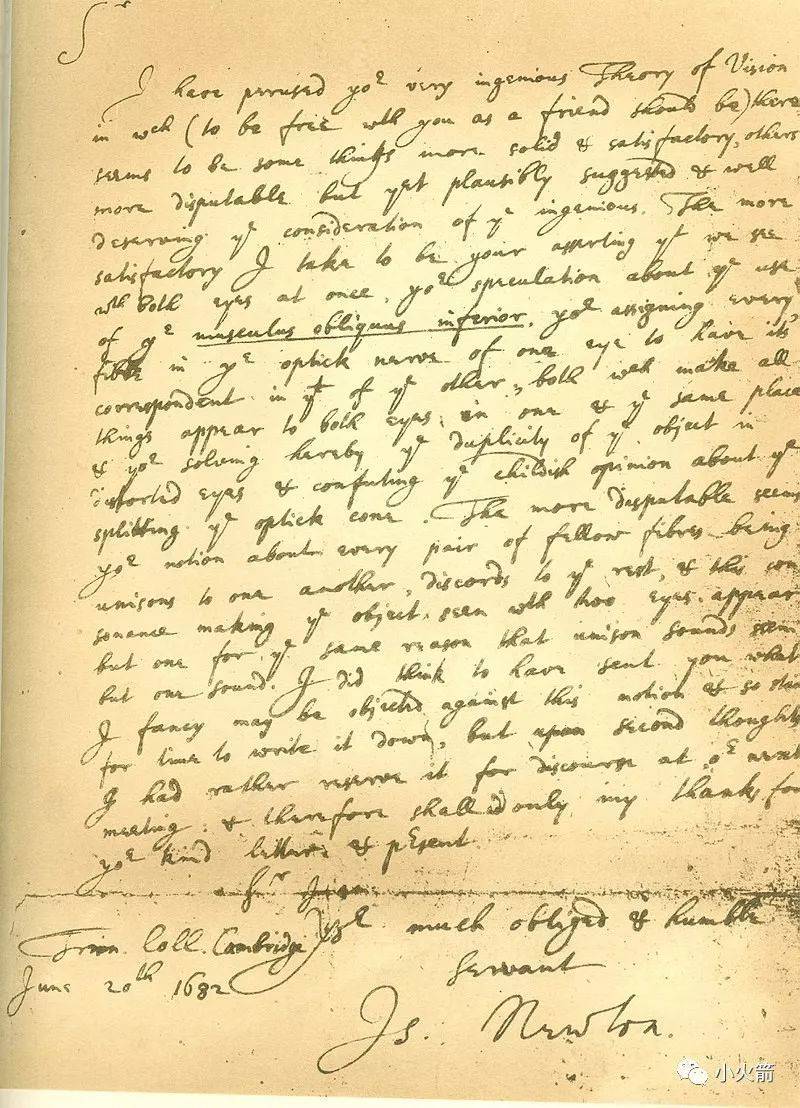 Sr
I have perused yor very ingenious Theory of Vision
in wch (to be free wth you as a friend should be) there
seems to be some things more solid & satisfactory, others
more disputable but yet plausibly suggested & well
deserving ye consideration of ye ingenious. The more
satisfactory I take to be your asserting yt we see
wth both eyes at once, yor speculation about ye use
of ye musculus obliquus inferior, yor assigning every
fibre in ye optick nerve of one eye to have its
correspondent in yt of ye other, both wch make all
things appear to both eyes in one & ye same place
& yor solving hereby ye duplicity of ye object in
distorted eyes & confuting ye childish opinion about ye
splitting ye optick cone. The more disputable seems
yor notion about every pair of fellow fibres being
unisons to one another, discords to ye rest, & this con
sonance making ye object seen wth two eyes appear
but one for ye same reason that unison sounds seem
but one sound. I did think to have sent you what
I fancy may be objected against this notion & so
for time to write it down, but upon second thoughts
I had rather reserve it for discourse at or next
meeting: & therefore shall add only my thanks for
yor kind letter & present.
Sr I am
Yor much obliged & humble
Servant
Trin. Coll. Cambridge
June 20th 1682
Is. Newton.
小火箭